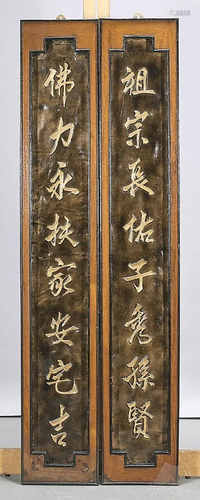 祖宗長佑子秀孫賢
佛力永扶家安宅吉